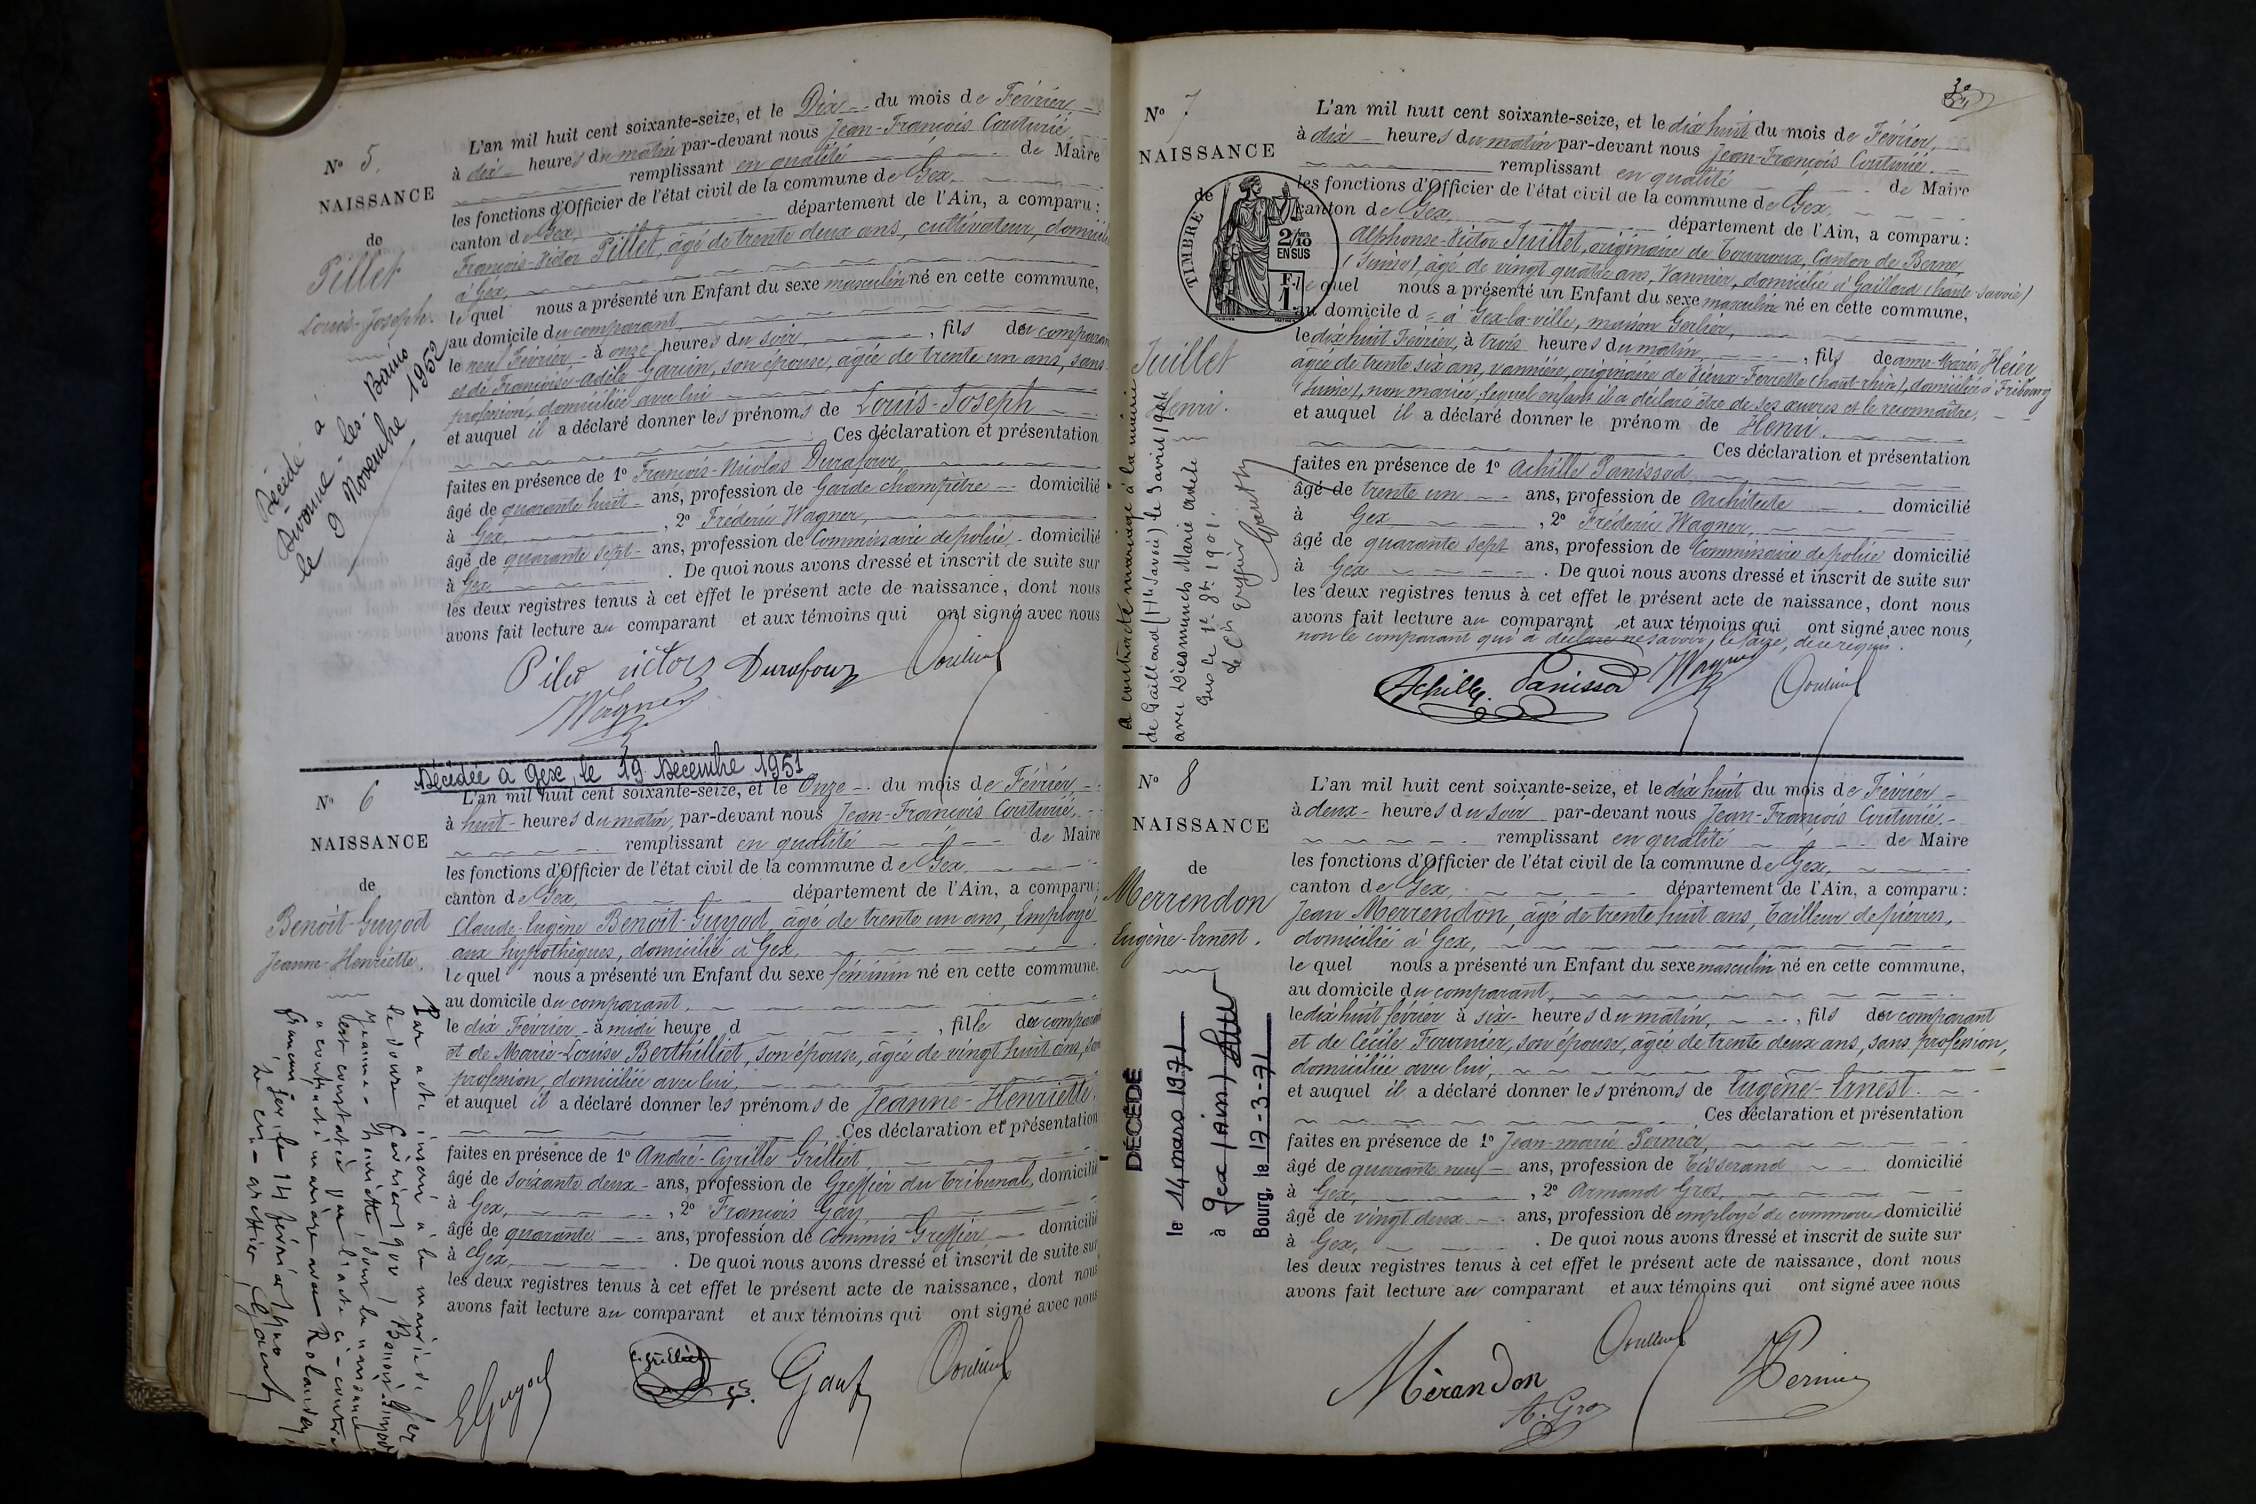 N° 5.
NAISSANCE
de
Pillet
Louis-Joseph.
Décédé à
Divonne-les-Bains
le 9 Novembre 1952
L'an mil huit cent soixante-seize, et le Dix du mois de Février,
à dix heures du matin par-devant nous Jean-François Couturié
remplissant en qualité de Maire
les fonctions d'Officier de l'état civil de la commune de Gex,
canton de Gex, département de l'Ain, a comparu :
François-Victor Pillet, âgé de trente deux ans, cultivateur, domicilié
à Gex,
lequel nous a présenté un Enfant du sexe masculin né en cette commune,
au domicile du comparant,
le neuf Février à onze heures du soir, , fils du comparant
et de Françoise-Adèle Garin, son épouse, âgée de trente un ans, sans
profession, domiciliée avec lui
et auquel il a déclaré donner les prénoms de Louis-Joseph
Ces déclaration et présentation
faites en présence de 1° François-Nicolas Durafour
âgé de quarante huit ans, profession de Garde champêtre domicilié
à Gex, , 2° Frédéric Wagner,
âgé de quarante sept ans, profession de Commissaire de police domicilié
à Gex . De quoi nous avons dressé et inscrit de suite sur
les deux registres tenus à cet effet le présent acte de naissance, dont nous
avons fait lecture au comparant et aux témoins qui ont signé avec nous
Pilet victor Durafour Couturié
Wagner
N° 6
NAISSANCE
de
Benoît-Guyod
Jeanne-Henriette.
Décédée à Gex, le 19 Décembre 1951
L'an mil huit cent soixante-seize, et le Onze du mois de Février,
à huit heures du matin, par-devant nous Jean-François Couturié,
remplissant en qualité de Maire
les fonctions d'Officier de l'état civil de la commune de Gex,
canton de Gex, département de l'Ain, a comparu :
Claude-Eugène Benoît-Guyod, âgé de trente un ans, Employé
aux hypothèques, domicilié à Gex,
lequel nous a présenté un Enfant du sexe féminin né en cette commune,
au domicile du comparant,
le dix Février à midi heure d , fille du comparant
et de Marie-Louise Berthilliet, son épouse, âgée de vingt huit ans, sans
profession, domiciliée avec lui,
et auquel il a déclaré donner les prénoms de Jeanne-Henriette.
Ces déclaration et présentation
faites en présence de 1° André-Cyrille Grilliet
âgé de soixante deux ans, profession de Greffier du Tribunal, domicilié
à Gex, , 2° François Gay,
âgé de quarante ans, profession de Commis Greffier, domicilié
à Gex, . De quoi nous avons dressé et inscrit de suite sur
les deux registres tenus à cet effet le présent acte de naissance, dont nous
avons fait lecture au comparant et aux témoins qui ont signé avec nous
Par acte inscrit à la mairie de Gex
le douze Février 1900, Benoit-Guyod
Jeanne-Henriette, dont la naissance
est constatée par l'acte ci-contre
a contracté mariage avec Rolandez
François
Gex, le 14 février 1900
Le com-greffier
E Guyod C. Grilliet Gay Couturié
N° 7
NAISSANCE
de
TIMBRE
2/10
EN SUS
F.
1
Juillet
Henri.
a contracté mariage à la mairie
de Gaillard (Hte Savoie), le 5 avril 1901
avec Marie Adèle
Le Cis Greffier
L'an mil huit cent soixante-seize, et le dix huit du mois de Février,
à dix heures du matin par-devant nous Jean-François Couturié.
remplissant en qualité de Maire
les fonctions d'Officier de l'état civil de la commune de Gex,
canton de Gex, département de l'Ain, a comparu :
Alphonse-Victor Juillet, originaire de Courroux, Canton de Berne,
(Suisse), âgé de vingt quatre ans, Vannier, domicilié à Gaillard (haute-Savoie)
lequel nous a présenté un Enfant du sexe masculin né en cette commune,
au domicile d à Gex-la-ville, maison Gerlier,
le dix huit Février, à trois heures du matin, , fils de anne-Marie Heier,
âgée de trente six ans, vannière, originaire de Vieux-Ferrette (haut-rhin), domiciliée à Fribourg
(Suisse), non mariée, lequel enfant il a déclaré être de ses œuvres et le reconnaître,
et auquel il a déclaré donner le prénom de Henri.
Ces déclaration et présentation
faites en présence de 1° Achille Panissod
âgé de trente un ans, profession de Architecte domicilié
à Gex , 2° Frédéric Wagner,
âgé de quarante sept ans, profession de Commissaire de police domicilié
à Gex . De quoi nous avons dressé et inscrit de suite sur
les deux registres tenus à cet effet le présent acte de naissance, dont nous
avons fait lecture au comparant et aux témoins qui ont signé avec nous,
non le comparant qui a déclaré ne savoir le faire, de ce requis.
Achille Panissod Wagner Couturié
N° 8
NAISSANCE
de
Merrendon
Eugène-Ernest.
DÉCÉDÉ
le 14 mars 1971
à Gex (Ain)
Bourg, le 17-3-71
L'an mil huit cent soixante-seize, et le dix huit du mois de Février
à deux heures du soir par-devant nous Jean-François Couturié.
remplissant en qualité de Maire
les fonctions d'Officier de l'état civil de la commune de Gex,
canton de Gex, département de l'Ain, a comparu :
Jean Merrendon, âgé de trente huit ans, tailleur de pierres,
domicilié à Gex,
lequel nous a présenté un Enfant du sexe masculin né en cette commune,
au domicile du comparant,
le dix huit février à six heures du matin, , fils du comparant
et de Cécile Fournier, son épouse, âgée de trente deux ans, sans profession,
domiciliée avec lui,
et auquel il a déclaré donner les prénoms de Eugène-Ernest.
Ces déclaration et présentation
faites en présence de 1° Jean-marie Pernier,
âgé de quarante neuf ans, profession de tisserand domicilié
à Gex, , 2° Armand Gros,
âgé de vingt deux ans, profession de employé de commerce domicilié
à Gex, . De quoi nous avons dressé et inscrit de suite sur
les deux registres tenus à cet effet le présent acte de naissance, dont nous
avons fait lecture au comparant et aux témoins qui ont signé avec nous
Mèrandon Couturié Pernier
A. Gros